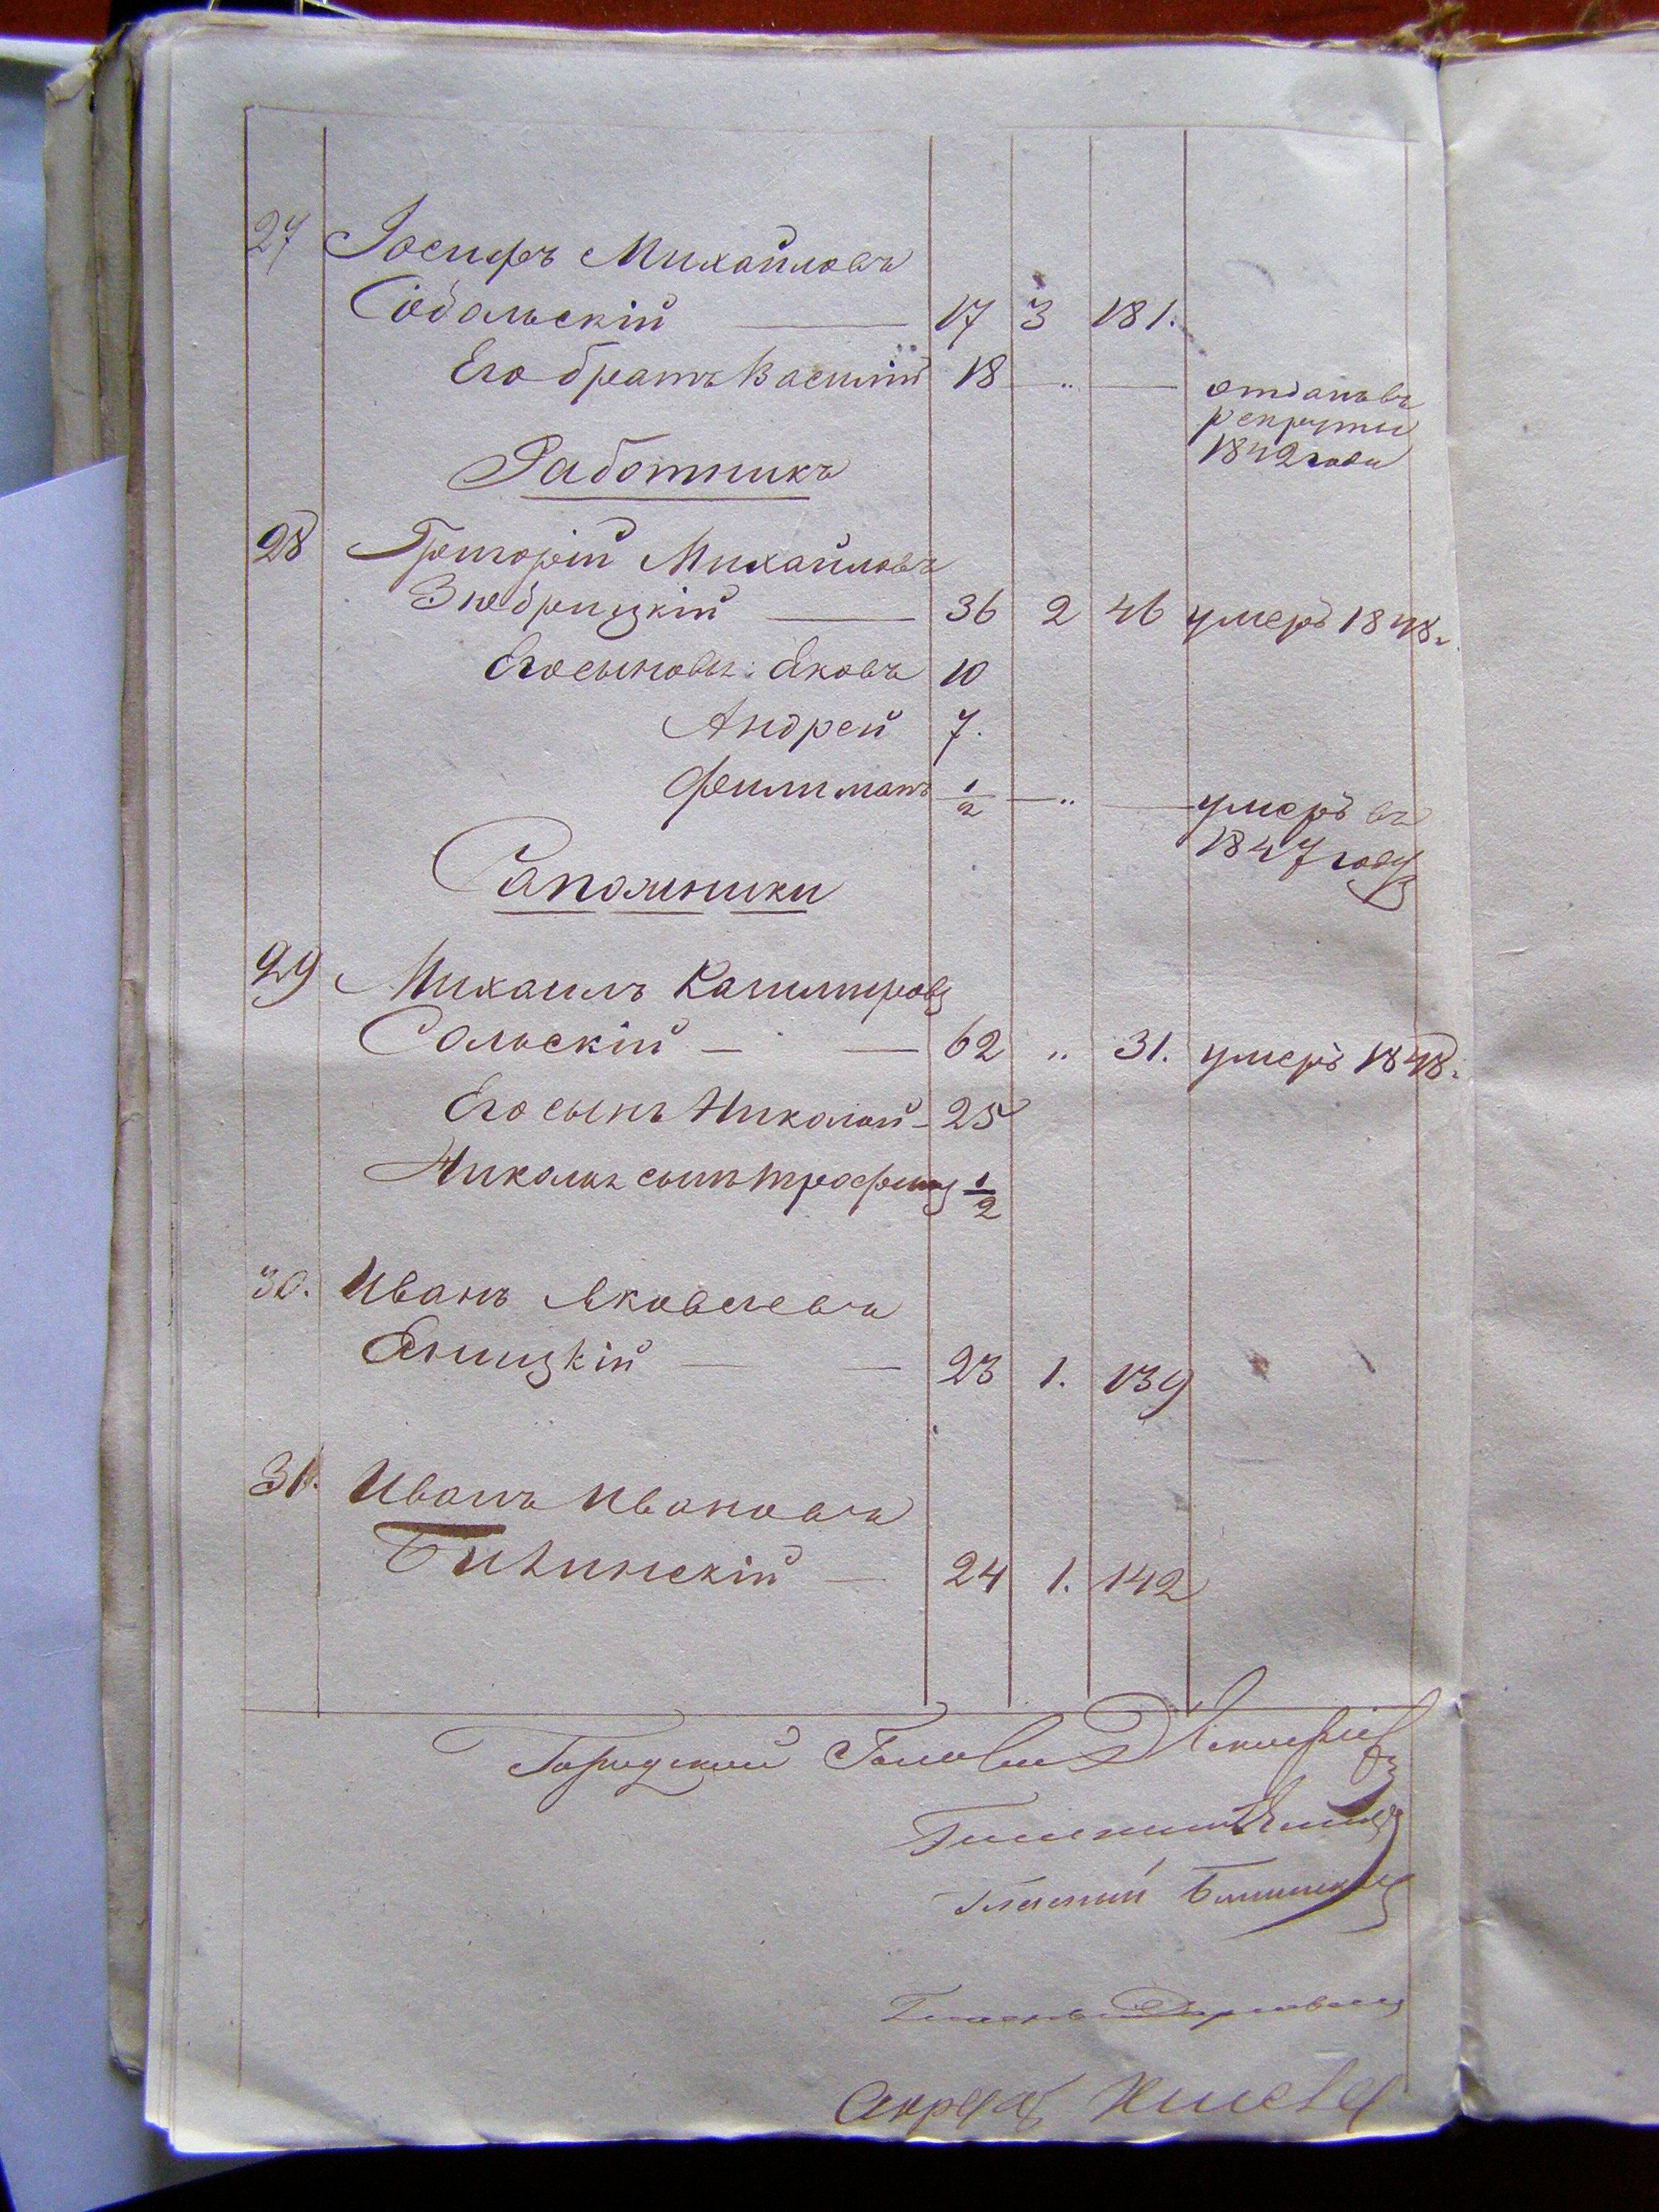 27 Іосифъ Михайловъ
Собольскій 17 3 181.
Его братъ Василій 18 — „ — отданъ въ
рекруты
1842 года
Работникъ
28 Григорій Михайловъ
36 2 46 умеръ 1848 г.
Его сыновья: Яковъ 10
Андрей 7.
Филимонъ 1/2 — „ — умеръ въ
1847 году
Сапожники
29 Михаилъ Казимировъ
Сольскій — — 62 „ 31. умеръ 1848 г.
Его сынъ Николай — 25
Никол. сынъ Трофимъ 1/2
30. Иванъ Яковлевъ
Яницкій — — 23 1. 139
31. Иванъ Ивановъ
Билинскій — 24 1. 142
Городской Голова
Гласный
Гласный